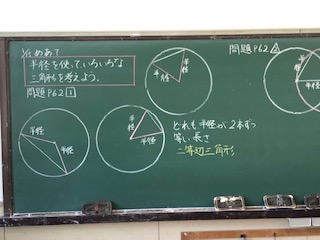 めあて
半径を使っていろいろな
三角形を考えよう。
問題P62 1
半径
半径
半径
半径
半径
半径
どれも半径が2本ずつ
等しい長さ
二等辺三角形
問題P62 2
半径
半径